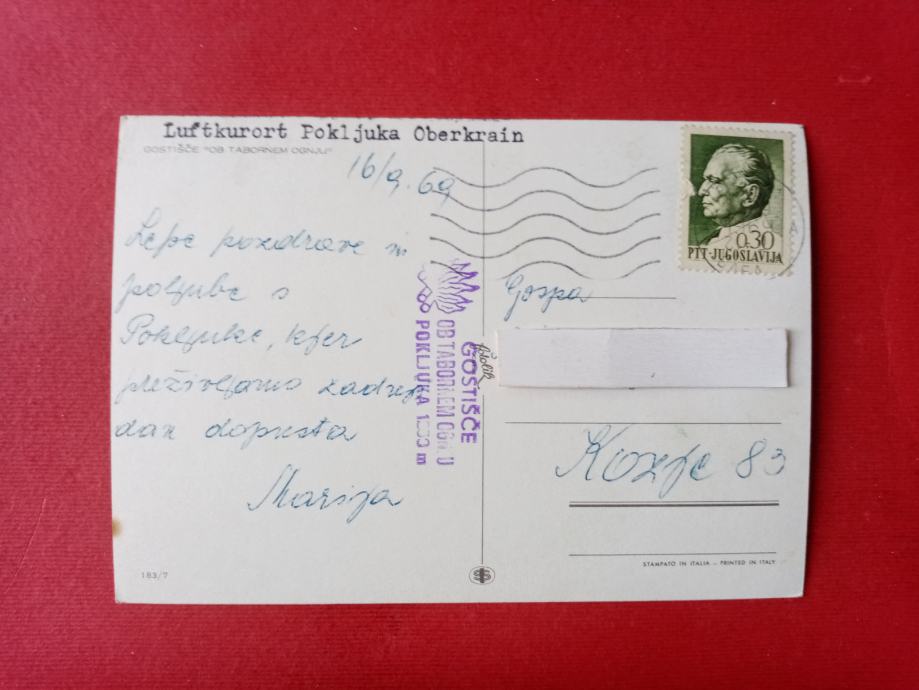 Luftkurort Pokljuka Oberkrain
GOSTIŠČE "OB TABORNEM OGNJU"
16/9. 69
Lepe pozdrave in
poljube s
Pokljuke, kjer
preživljamo zadnji
dan dopusta
Marija
183/7
GOSTIŠČE
OB TABORNEM OGNJU
POKLJUKA 1300 m
0.30
PTT-JUGOSLAVIJA
Gospa
Kozje 83
STAMPATO IN ITALIA – PRINTED IN ITALY